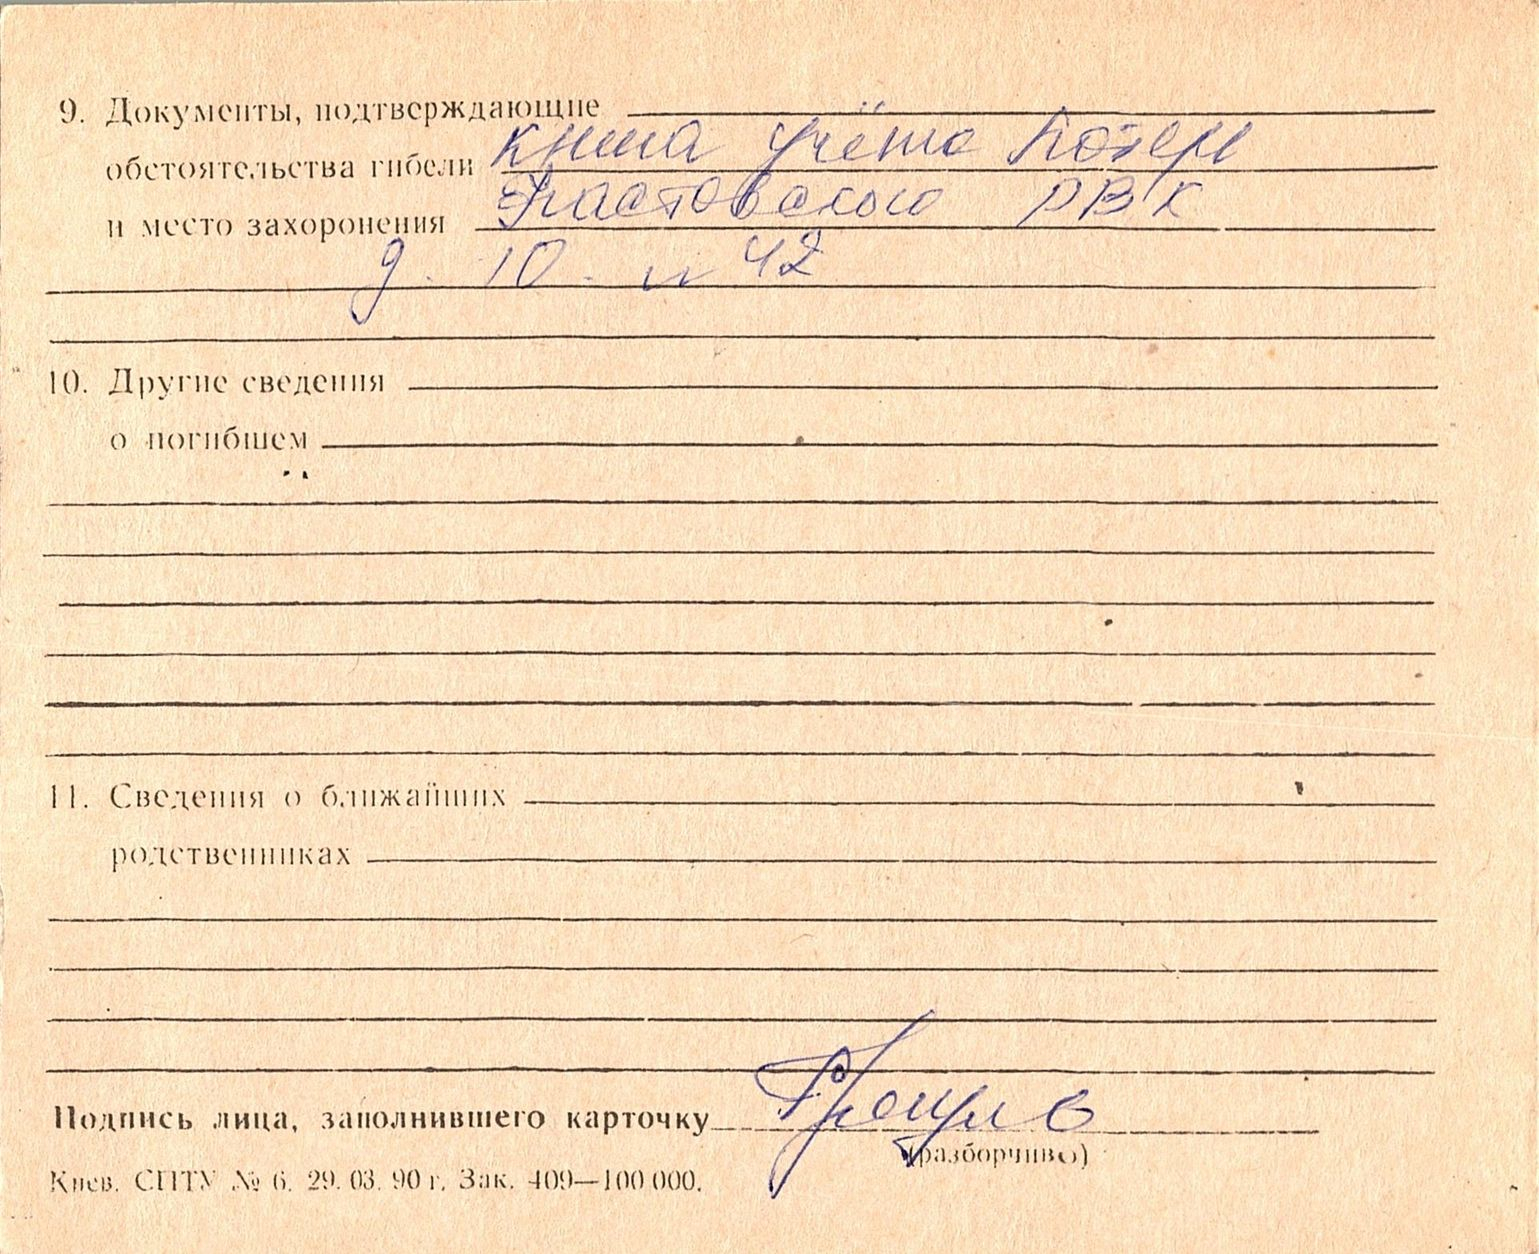 9. Документы, подтверждающие
обстоятельства гибели книга учёта потерь
и место захоронения Фастовского РВК
д. 10. л 42
10. Другие сведения
о погибшем
11. Сведения о ближайших
родственниках
Подпись лица, заполнившего карточку
(разборчиво)
Киев. СПТУ № 6. 29. 03. 90 г. Зак. 409—100 000.